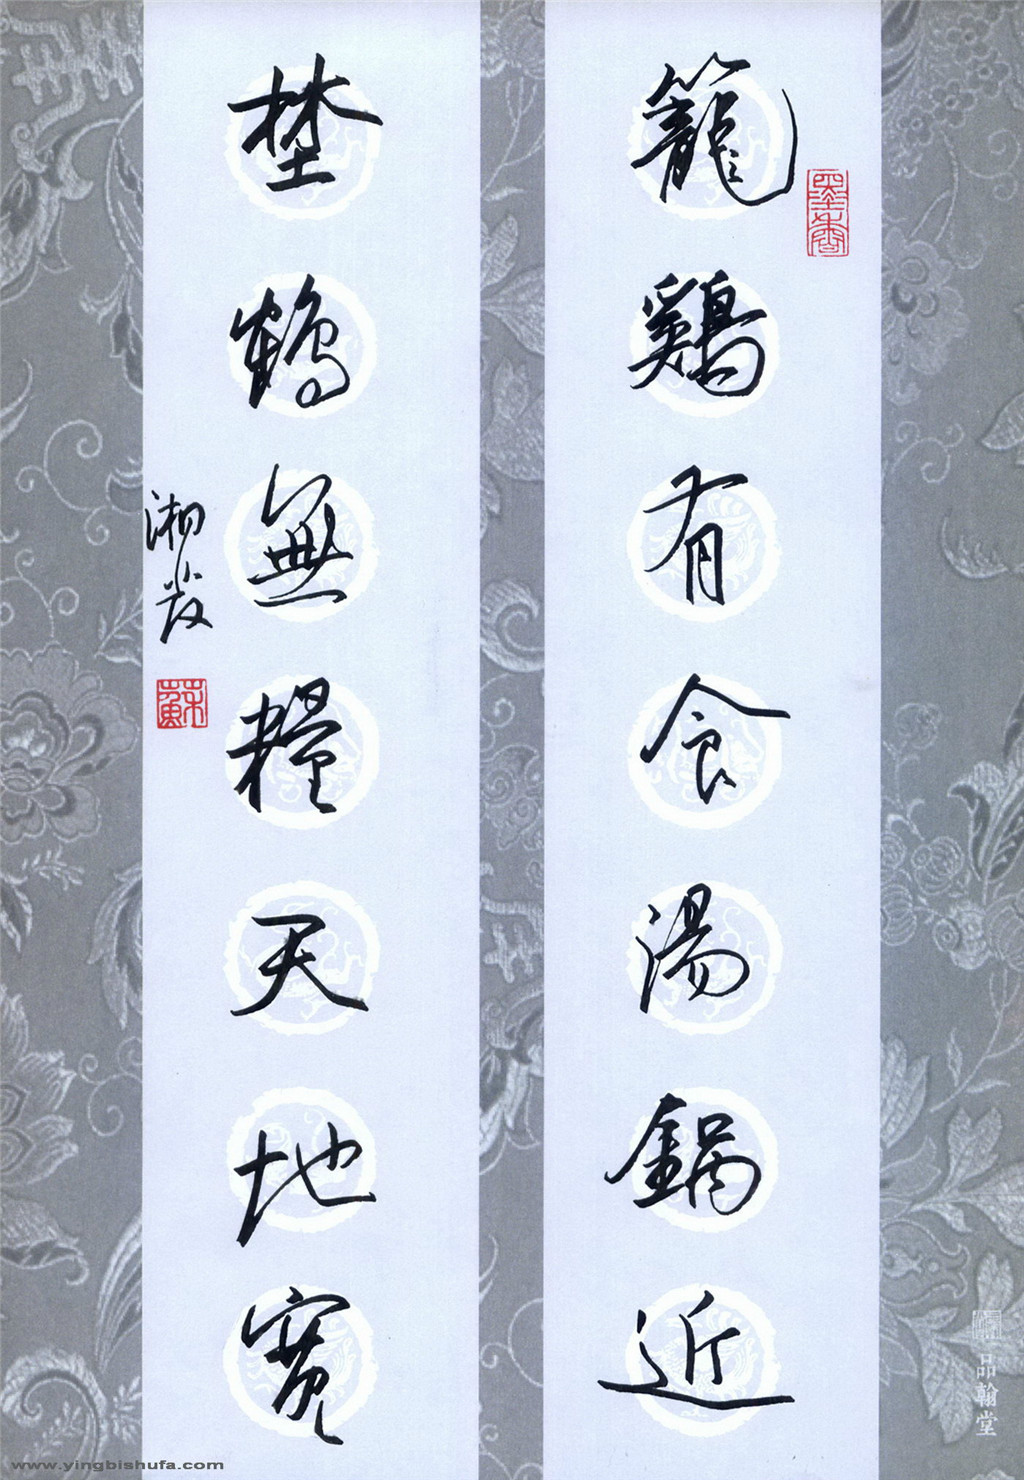 籠鷄有食湯鍋近
墨香
埜鶴無糧天地寬
湘辉
蘇
品翰堂
www.yingbishufa.com